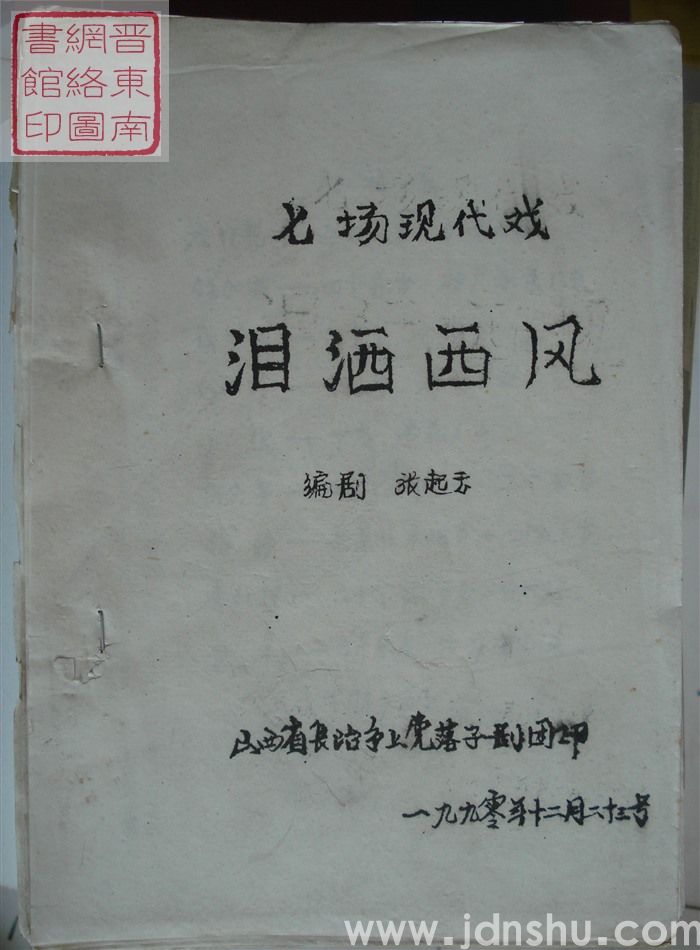 晋東南
網絡圖
書館印
七场现代戏
泪洒西风
编剧 张起云
山西省长治市上党落子剧团印
一九九零年十二月二十三号
www.jdnshu.com